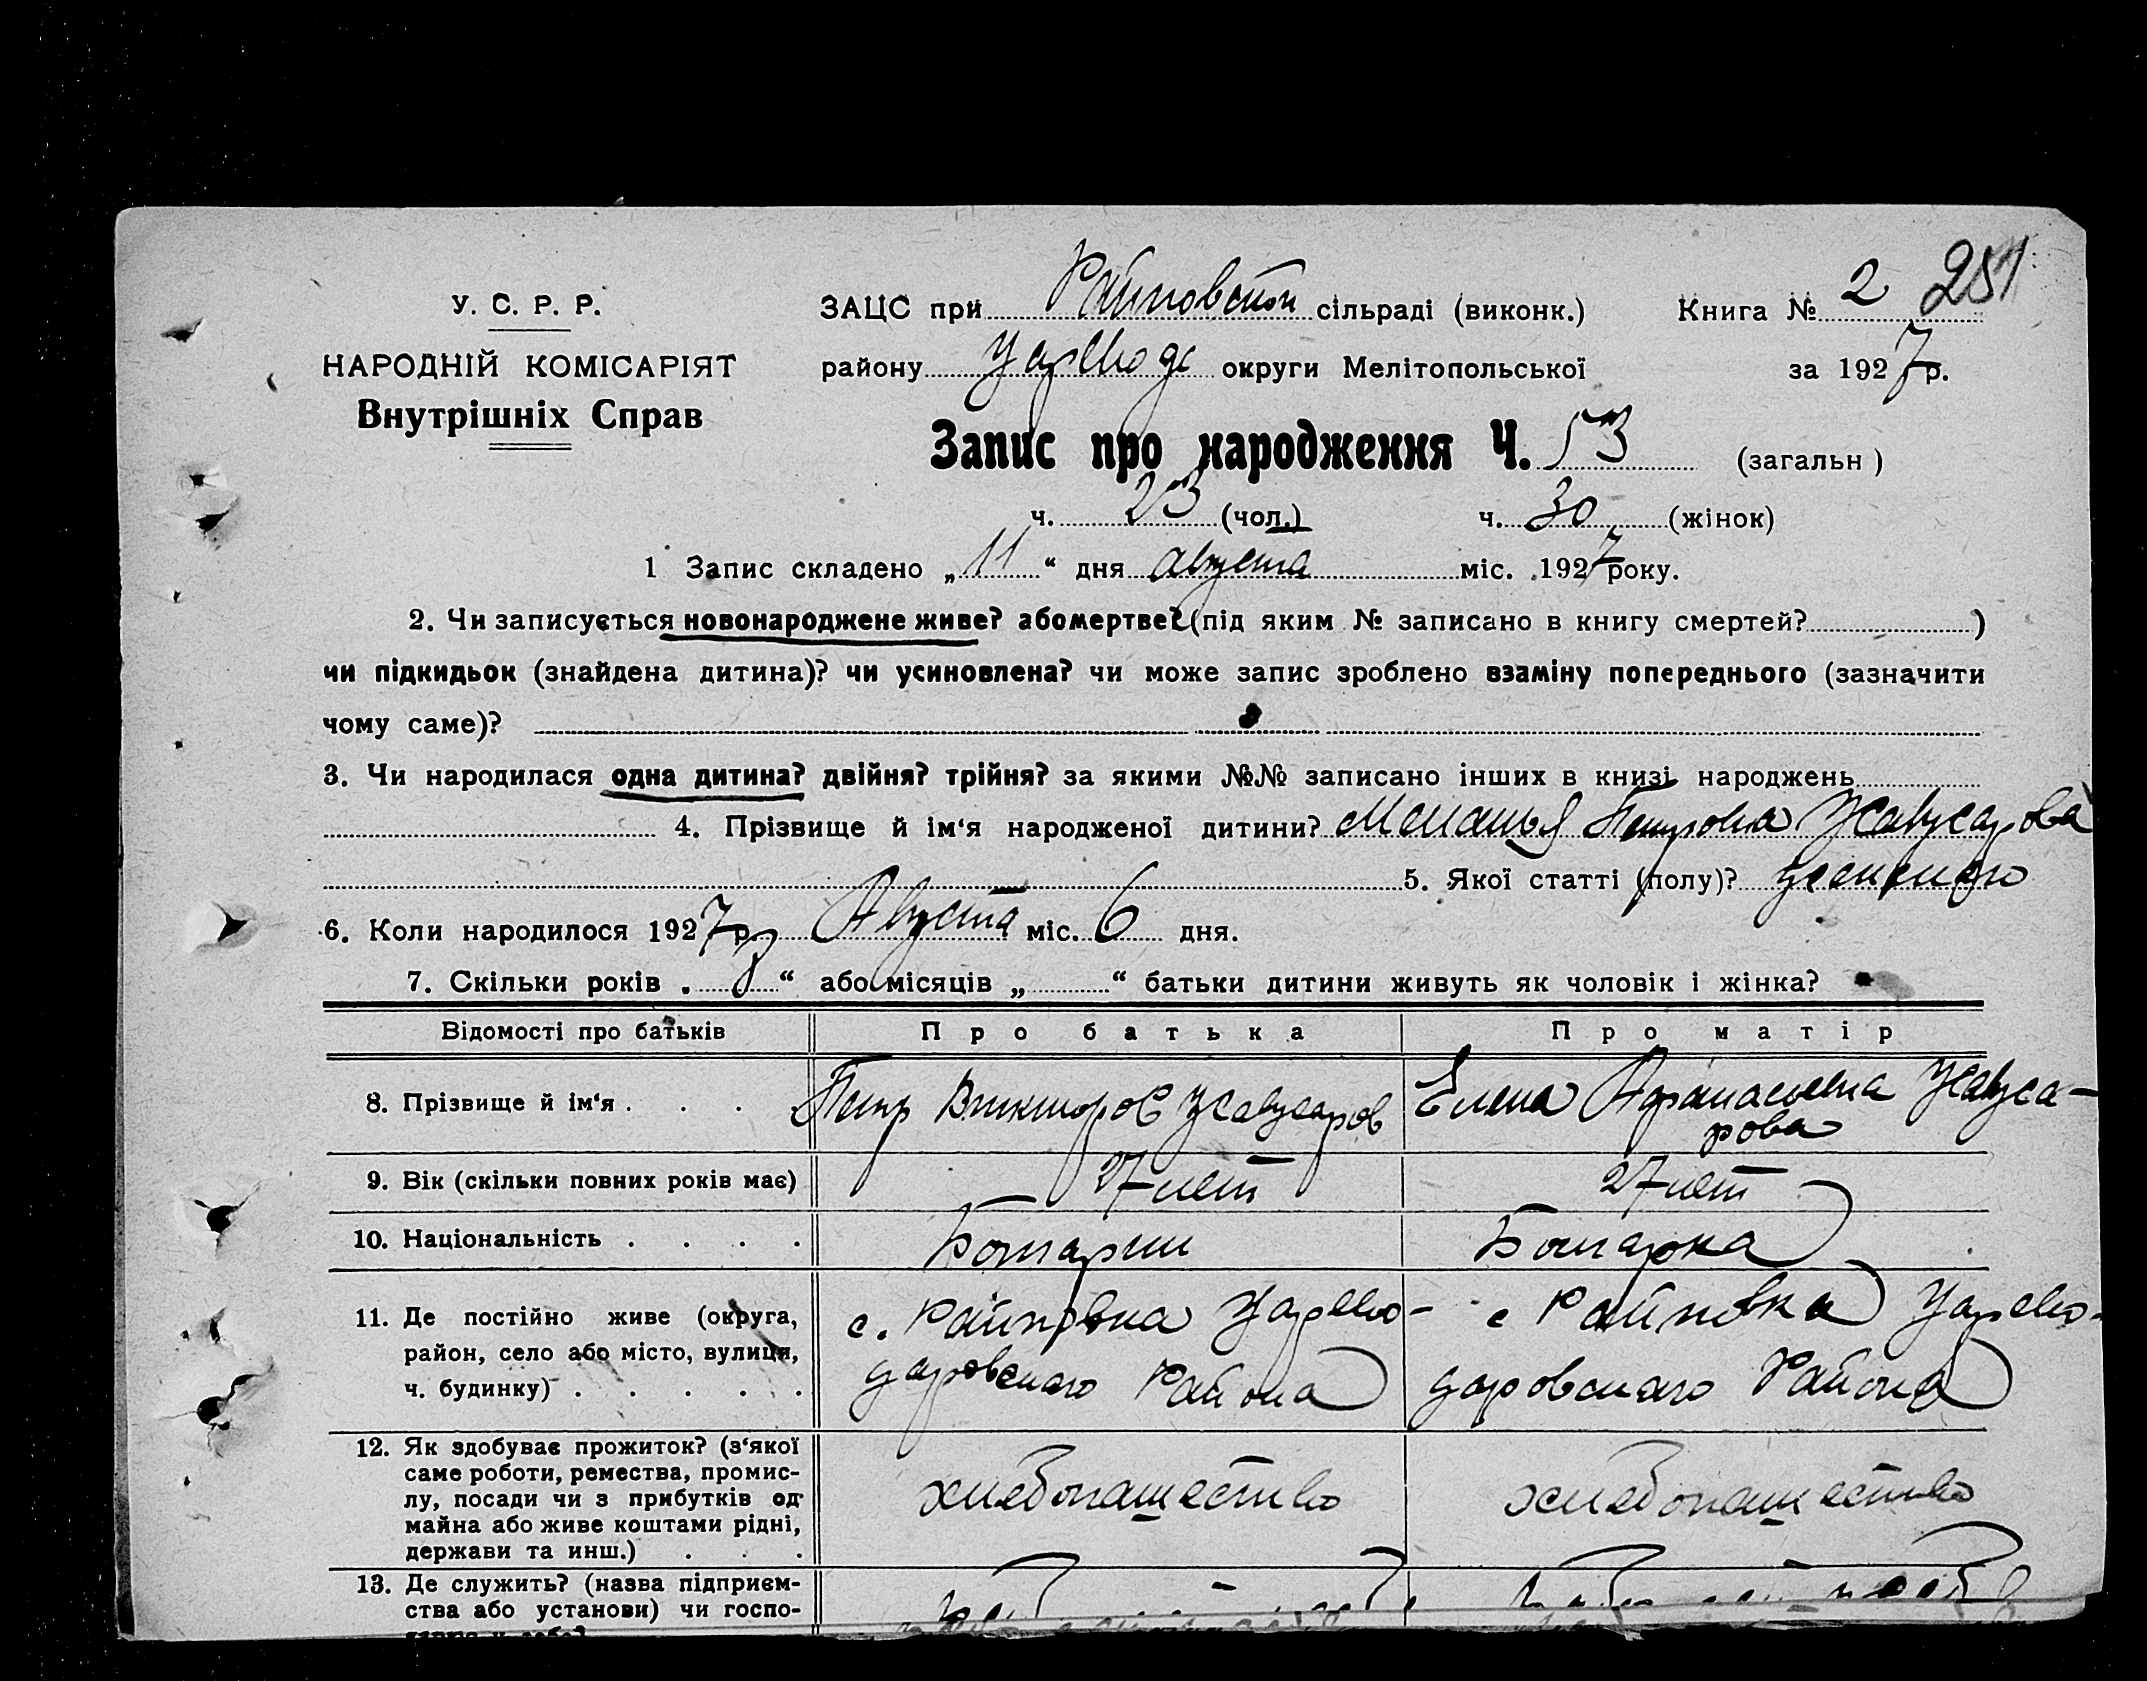 2 251
У. С. Р. Р. ЗАЦС при Райновской сільраді (виконк.) Книга №
НАРОДНІЙ КОМІСАРІЯТ району Царевода округи Мелітопольської за 1927 р.
Внутрішніх Справ
Запис про народження Ч. 53 (загальн )
ч. 23 (чол.) ч. 30 (жінок)
1 Запис складено „ 11 “ дня августа міс. 1927 року.
2. Чи записується новонароджене живе? або мертве? (під яким № записано в книгу смертей? )
чи підкидьок (знайдена дитина)? чи усиновлена? чи може запис зроблено взаміну попереднього (зазначити
чому саме)?
3. Чи народилася одна дитина? двійня? трійня? за якими №№ записано інших в книзі народжень
4. Прізвище й ім‘я народженої дитини? Меланья Петровна Жавусарова
5. Якої статті (полу)? женского
6. Коли народилося 1927 р. Августа міс. 6 дня.
7. Скільки років „ 8 “ або місяців „ “ батьки дитини живуть як чоловік і жінка?
Відомості про батьків Про батька Про матір
8. Прізвище й ім‘я . . . . Петр Викторов Жавусаров Елена Афанасьевна Жавуса-
рова
9. Вік (скільки повних років має) 27 лет 27 лет
10. Національність . . . . Болгарин Болгарка
11. Де постійно живе (округа, с. Райновка Царево- с Райновка Царево-
район, село або місто, вулиця,
ч. будинку) . . . . . даровского Района даровского Района
12. Як здобуває прожиток? (з‘якої
саме роботи, ремества, промис-
лу, посади чи з прибутків од хлебопашество хлебопашество
майна або живе коштами рідні,
держави та инш.) . . .
13. Де служить? (назва підприєм-
ства або установи) чи госпо-